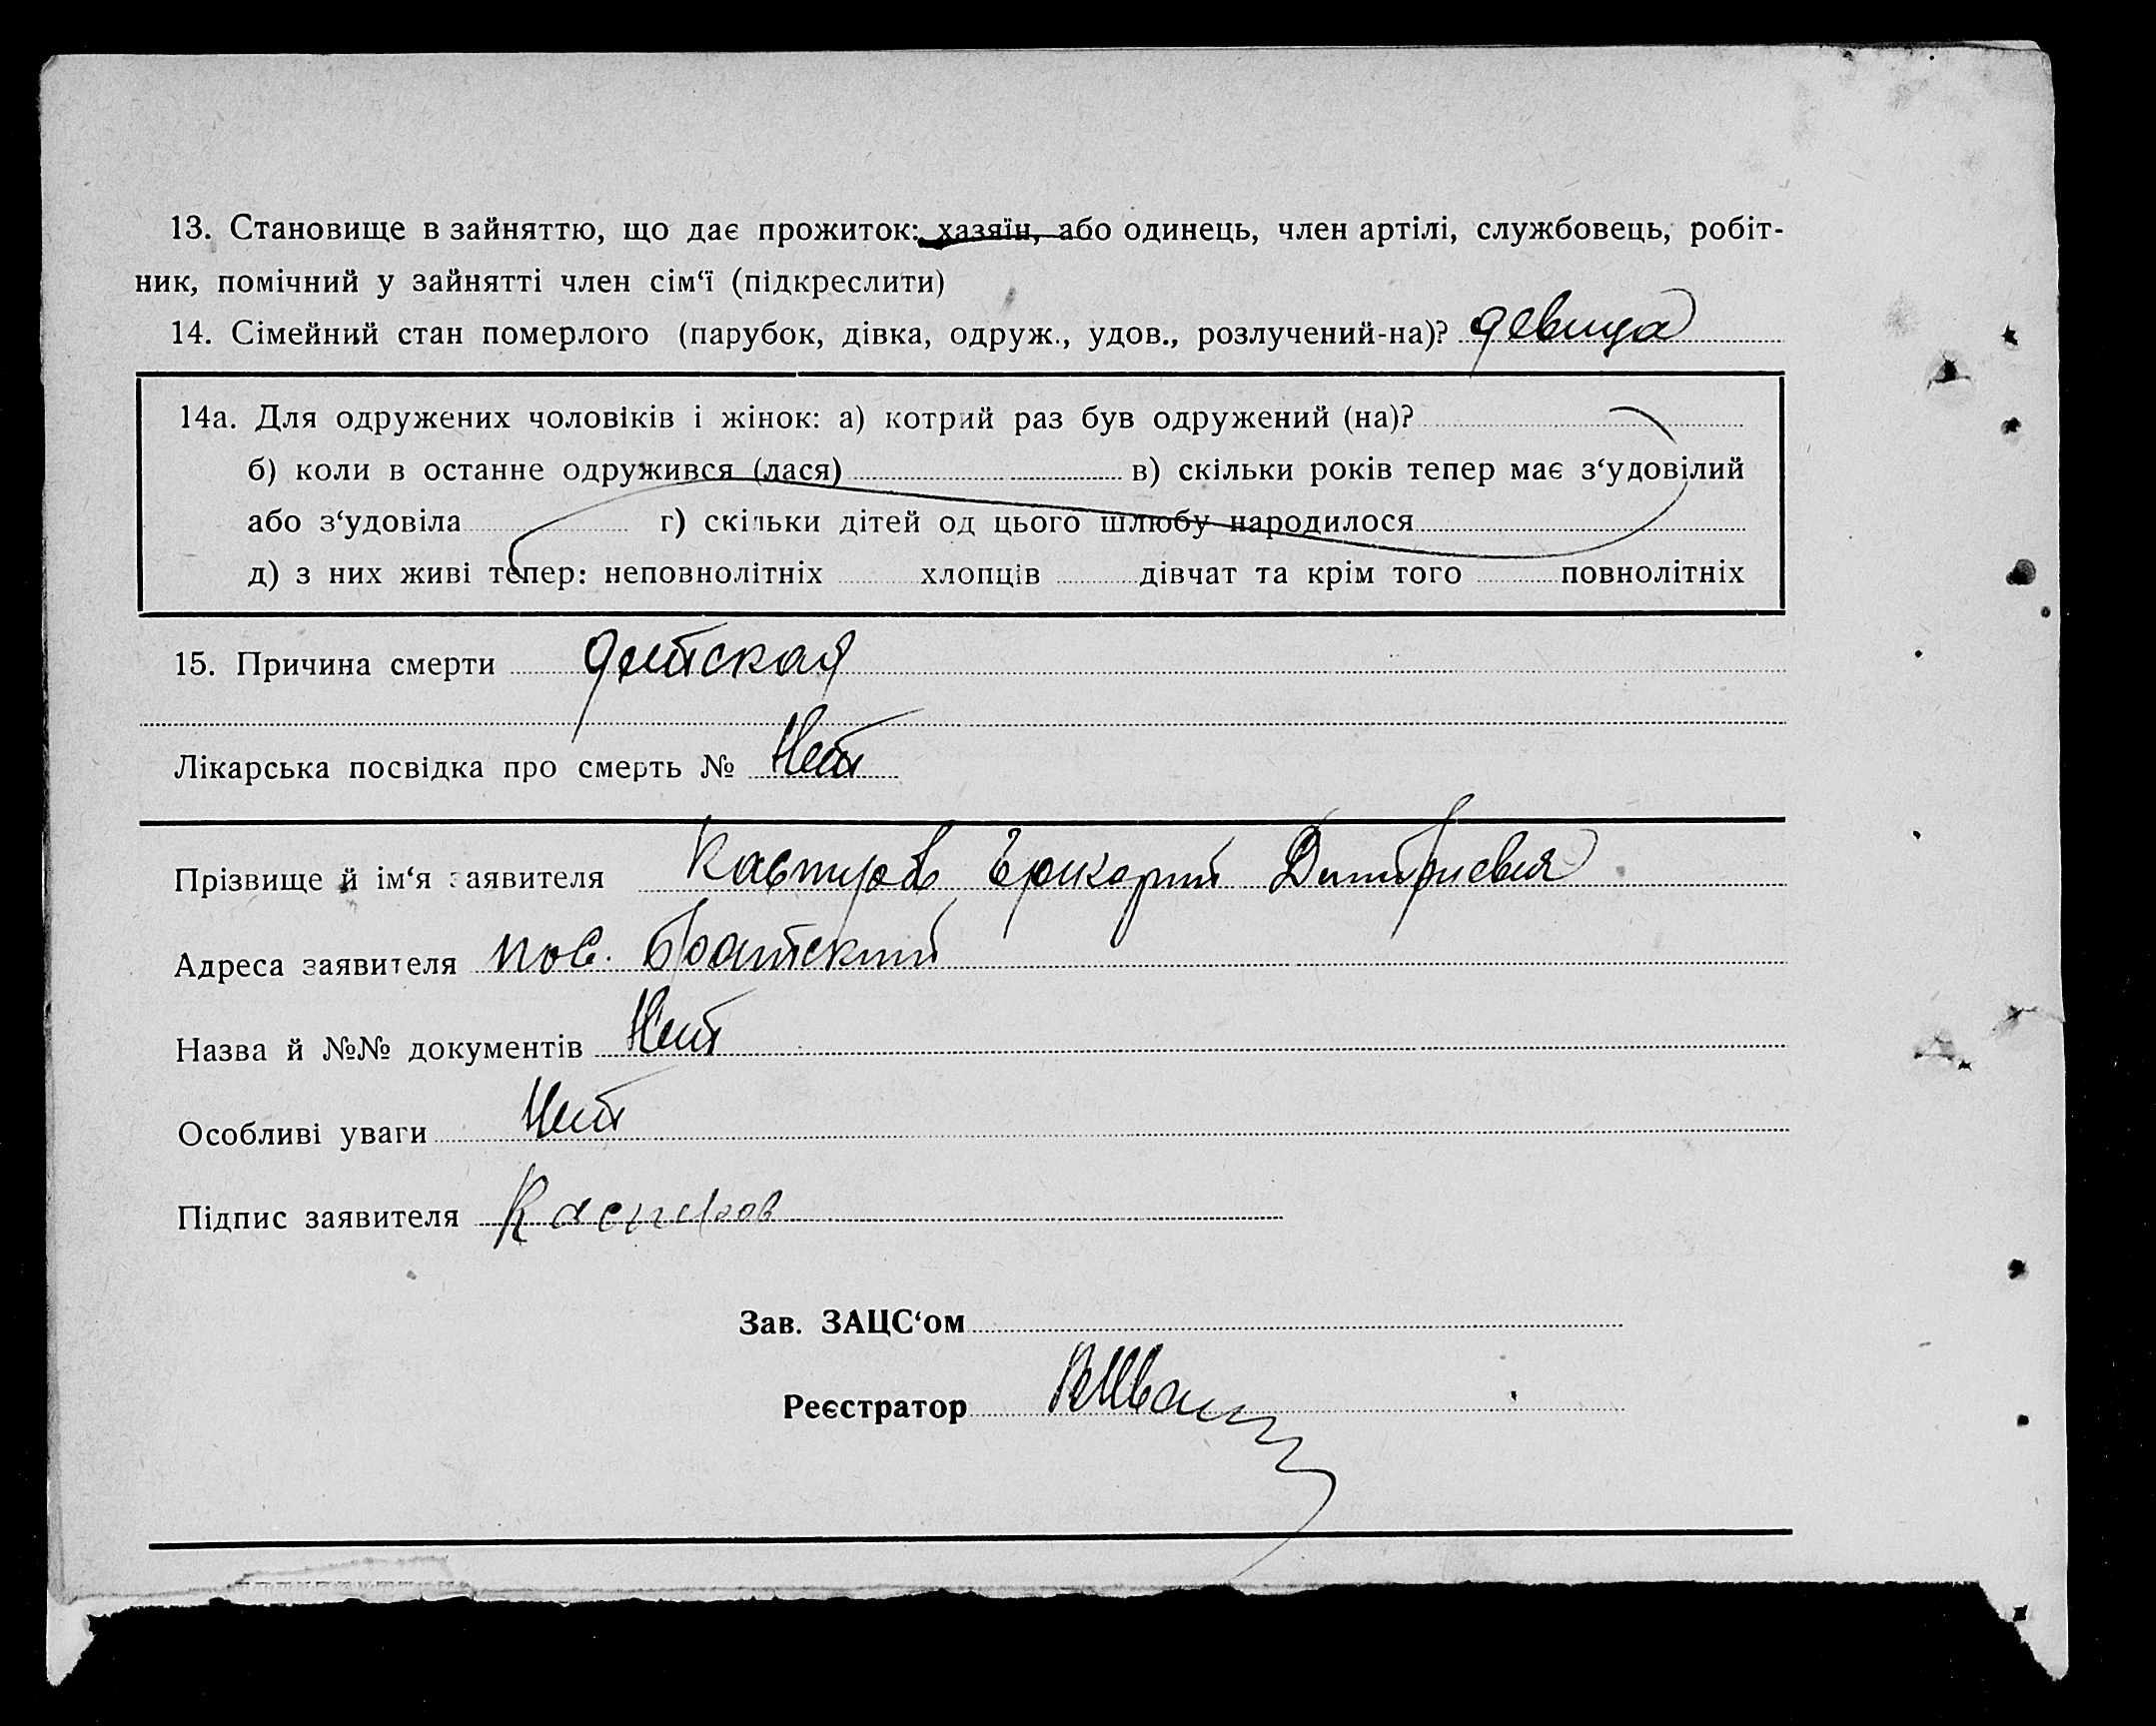 13. Становище в зайняттю, що дає прожиток: хазяїн, або одинець, член артілі, службовець, робіт-
ник, помічний у зайнятті член сім‘ї (підкреслити)
14. Сімейний стан померлого (парубок, дівка, одруж., удов., розлучений-на)? девица
14а. Для одружених чоловіків і жінок: а) котрий раз був одружений (на)?
б) коли в останне одружився (лася) в) скільки років тепер має з‘удовілий
або з‘удовіла г) скільки дітей од цього шлюбу народилося
д) з них живі тепер: неповнолітніх хлопців дівчат та крім того повнолітніх
15. Причина смерти детская
Лікарська посвідка про смерть № Нет
Прізвище й ім‘я заявителя Каспиров Григорий
Адреса заявителя пос. Братский
Назва й №№ документів Нет
Особливі уваги Нет
Підпис заявителя Каспиров
Зав. ЗАЦС‘ом
Реєстратор